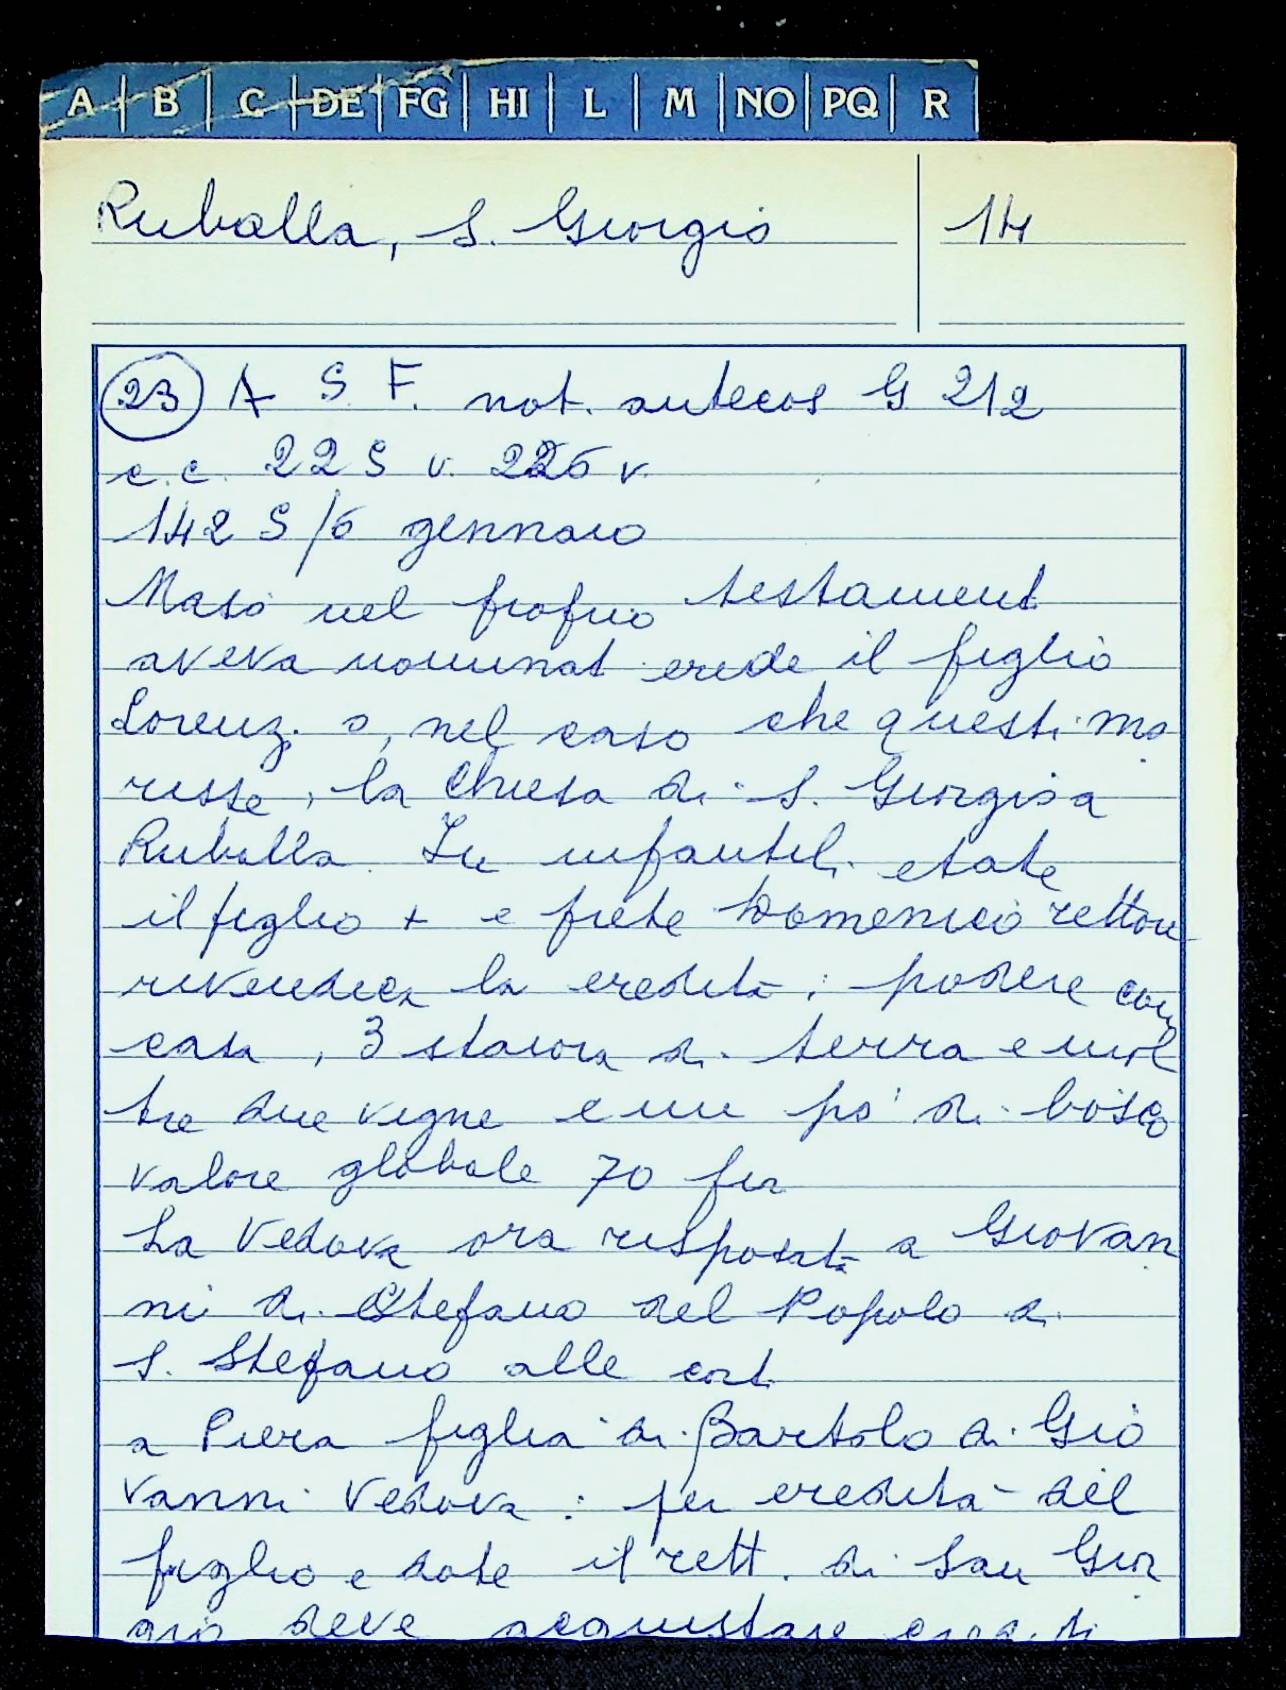 A B C DE FG HI L M NO PQ R
Ruballa, S. Giorgio 14
23 A S F. not. antecos G 212
c.c. 225 v. 226 v.
1425/6 gennaio
Maso nel proprio testament
aveva nominat erede il figlio
Lorenz. o, nel caso che questi mo
risse, la chiesa di S. Giorgio a
Ruballa. In infantili etate
il figlio + e prete Domenico rettore
rivendica la eredità: podere con
casa, 3 staiora di terra e inol
tre due vigne e un po' di bosco
valore globale 70 fior
La Vedova ora risposata a Giovan
ni di Stefano del Popolo di
S. Stefano alle cort
a Piera figlia di Bartolo di Gio
vanni Vedova: per eredità del
figlio e dote il rett. di San Gior
gio deve acquistare